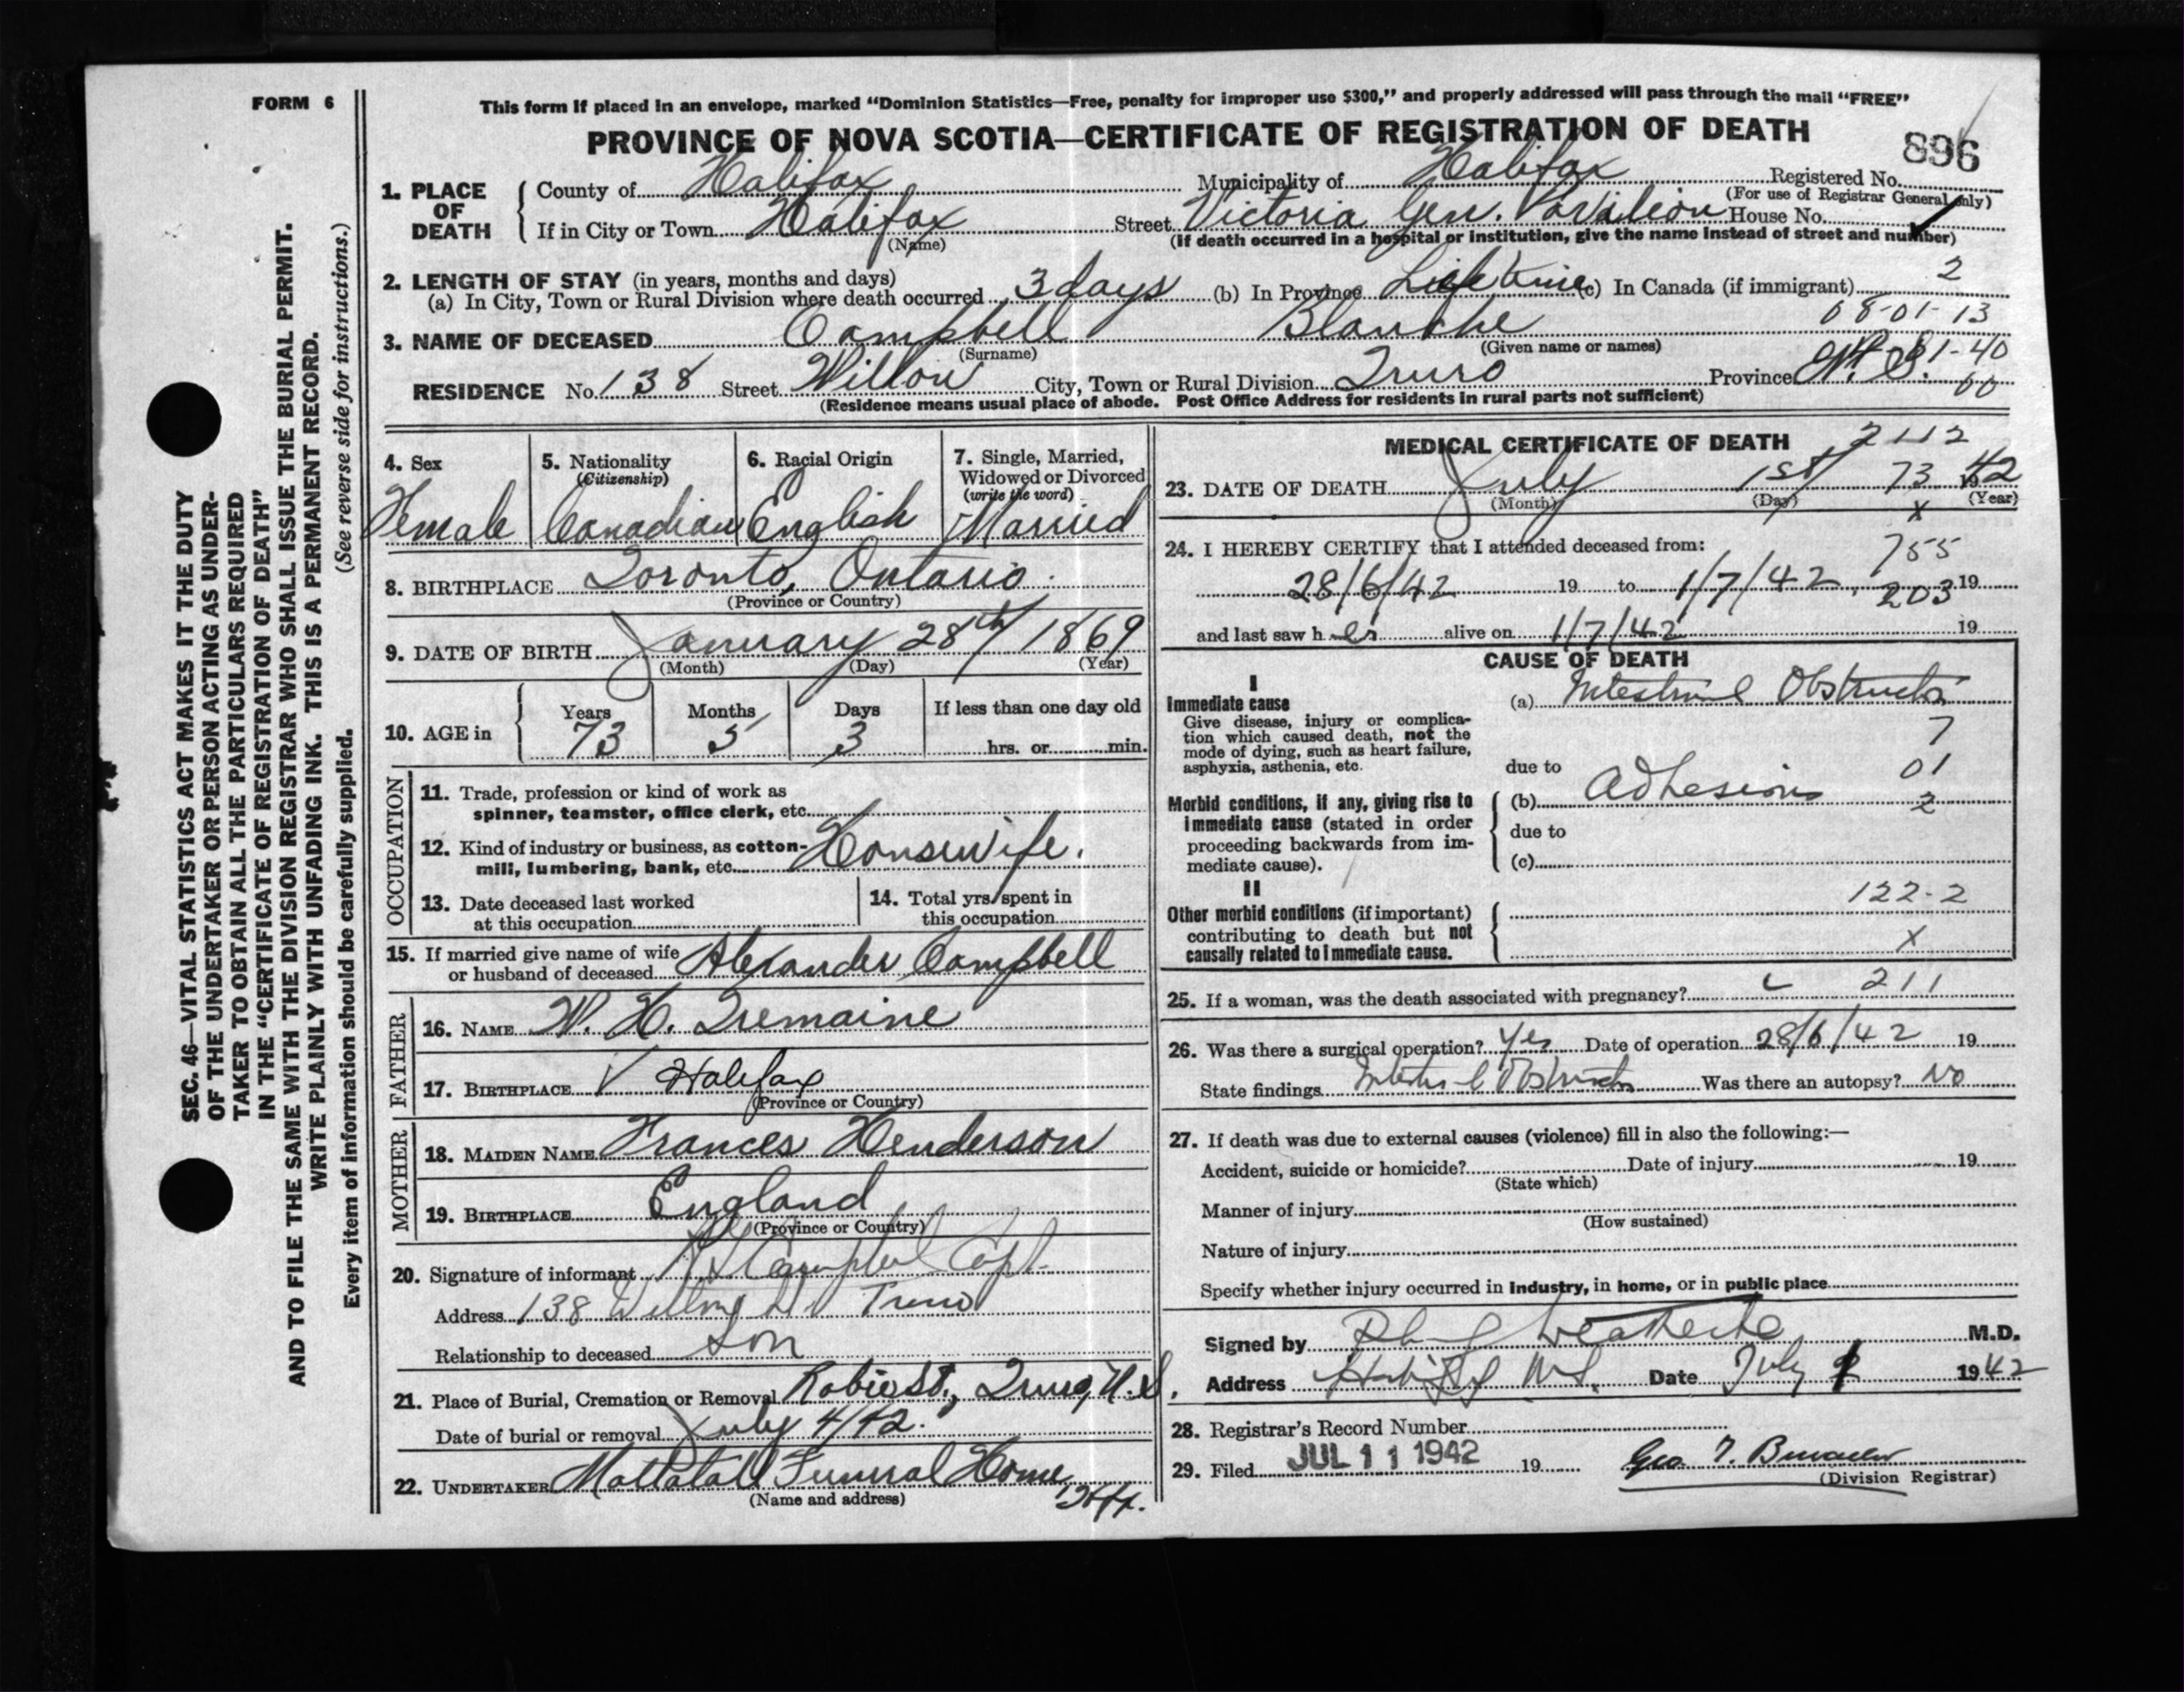 FORM 6
This form if placed in an envelope, marked “Dominion Statistics—Free, penalty for improper use $300,” and properly addressed will pass through the mail “FREE”
PROVINCE OF NOVA SCOTIA—CERTIFICATE OF REGISTRATION OF DEATH
896
1. PLACE OF DEATH
County of Halifax Municipality of Halifax Registered No.
(For use of Registrar General only)
If in City or Town Halifax Street Victoria Gen. Pavilion House No.
(Name) (If death occurred in a hospital or institution, give the name instead of street and number)
2. LENGTH OF STAY (in years, months and days)
(a) In City, Town or Rural Division where death occurred 3 days (b) In Province Lifetime (c) In Canada (if immigrant) 2
08-01-13
3. NAME OF DECEASED Campbell Blanche
(Surname) (Given name or names)
RESIDENCE No. 138 Street Willow City, Town or Rural Division Truro Province N. S. 1-40
00
(Residence means usual place of abode. Post Office Address for residents in rural parts not sufficient)
4. Sex 5. Nationality (Citizenship) 6. Racial Origin 7. Single, Married, Widowed or Divorced (write the word)
Female Canadian English Married
8. BIRTHPLACE Toronto, Ontario
(Province or Country)
9. DATE OF BIRTH January 28th 1869
(Month) (Day) (Year)
10. AGE in Years Months Days If less than one day old
73 5 3 hrs. or min.
OCCUPATION
11. Trade, profession or kind of work as
spinner, teamster, office clerk, etc.
12. Kind of industry or business, as cotton-
mill, lumbering, bank, etc. Housewife.
13. Date deceased last worked
at this occupation
14. Total yrs. spent in
this occupation
15. If married give name of wife
or husband of deceased Alexander Campbell
FATHER
16. NAME W. H. Tremaine
17. BIRTHPLACE Halifax
(Province or Country)
MOTHER
18. MAIDEN NAME Frances Henderson
19. BIRTHPLACE England
(Province or Country)
20. Signature of informant Campbell Capt.
Address 138 Willow St Truro
Relationship to deceased Son
21. Place of Burial, Cremation or Removal Robie St., Truro, N.S.
Date of burial or removal July 4/42.
22. UNDERTAKER Mattatall Funeral Home
(Name and address) Hfx.
MEDICAL CERTIFICATE OF DEATH 2112
23. DATE OF DEATH July 1st 73 1942
(Month) (Day) (Year)
x
24. I HEREBY CERTIFY that I attended deceased from:
755
28/6/42 19 to 1/7/42 203 19
and last saw her alive on 1/7/42 19
CAUSE OF DEATH
I
Immediate cause
Give disease, injury or complica-
tion which caused death, not the
mode of dying, such as heart failure,
asphyxia, asthenia, etc.
(a) Intestinal Obstruction
7
due to 01
Morbid conditions, if any, giving rise to
immediate cause (stated in order
proceeding backwards from im-
mediate cause).
(b) Adhesions 2
due to
(c)
II
122-2
Other morbid conditions (if important)
contributing to death but not
causally related to immediate cause.
x
25. If a woman, was the death associated with pregnancy? 211
26. Was there a surgical operation? Yes Date of operation 28/6/42 19
State findings Intestinal Obstruction Was there an autopsy? No
27. If death was due to external causes (violence) fill in also the following:—
Accident, suicide or homicide? Date of injury 19
(State which)
Manner of injury
(How sustained)
Nature of injury
Specify whether injury occurred in industry, in home, or in public place
Signed by M.D.
Address Halifax N.S. Date July 1942
28. Registrar's Record Number
29. Filed JUL 11 1942 19
(Division Registrar)
SEC. 46—VITAL STATISTICS ACT MAKES IT THE DUTY
OF THE UNDERTAKER OR PERSON ACTING AS UNDER-
TAKER TO OBTAIN ALL THE PARTICULARS REQUIRED
IN THE “CERTIFICATE OF REGISTRATION OF DEATH”
AND TO FILE THE SAME WITH THE DIVISION REGISTRAR WHO SHALL ISSUE THE BURIAL PERMIT.
WRITE PLAINLY WITH UNFADING INK. THIS IS A PERMANENT RECORD.
Every item of information should be carefully supplied. (See reverse side for instructions.)